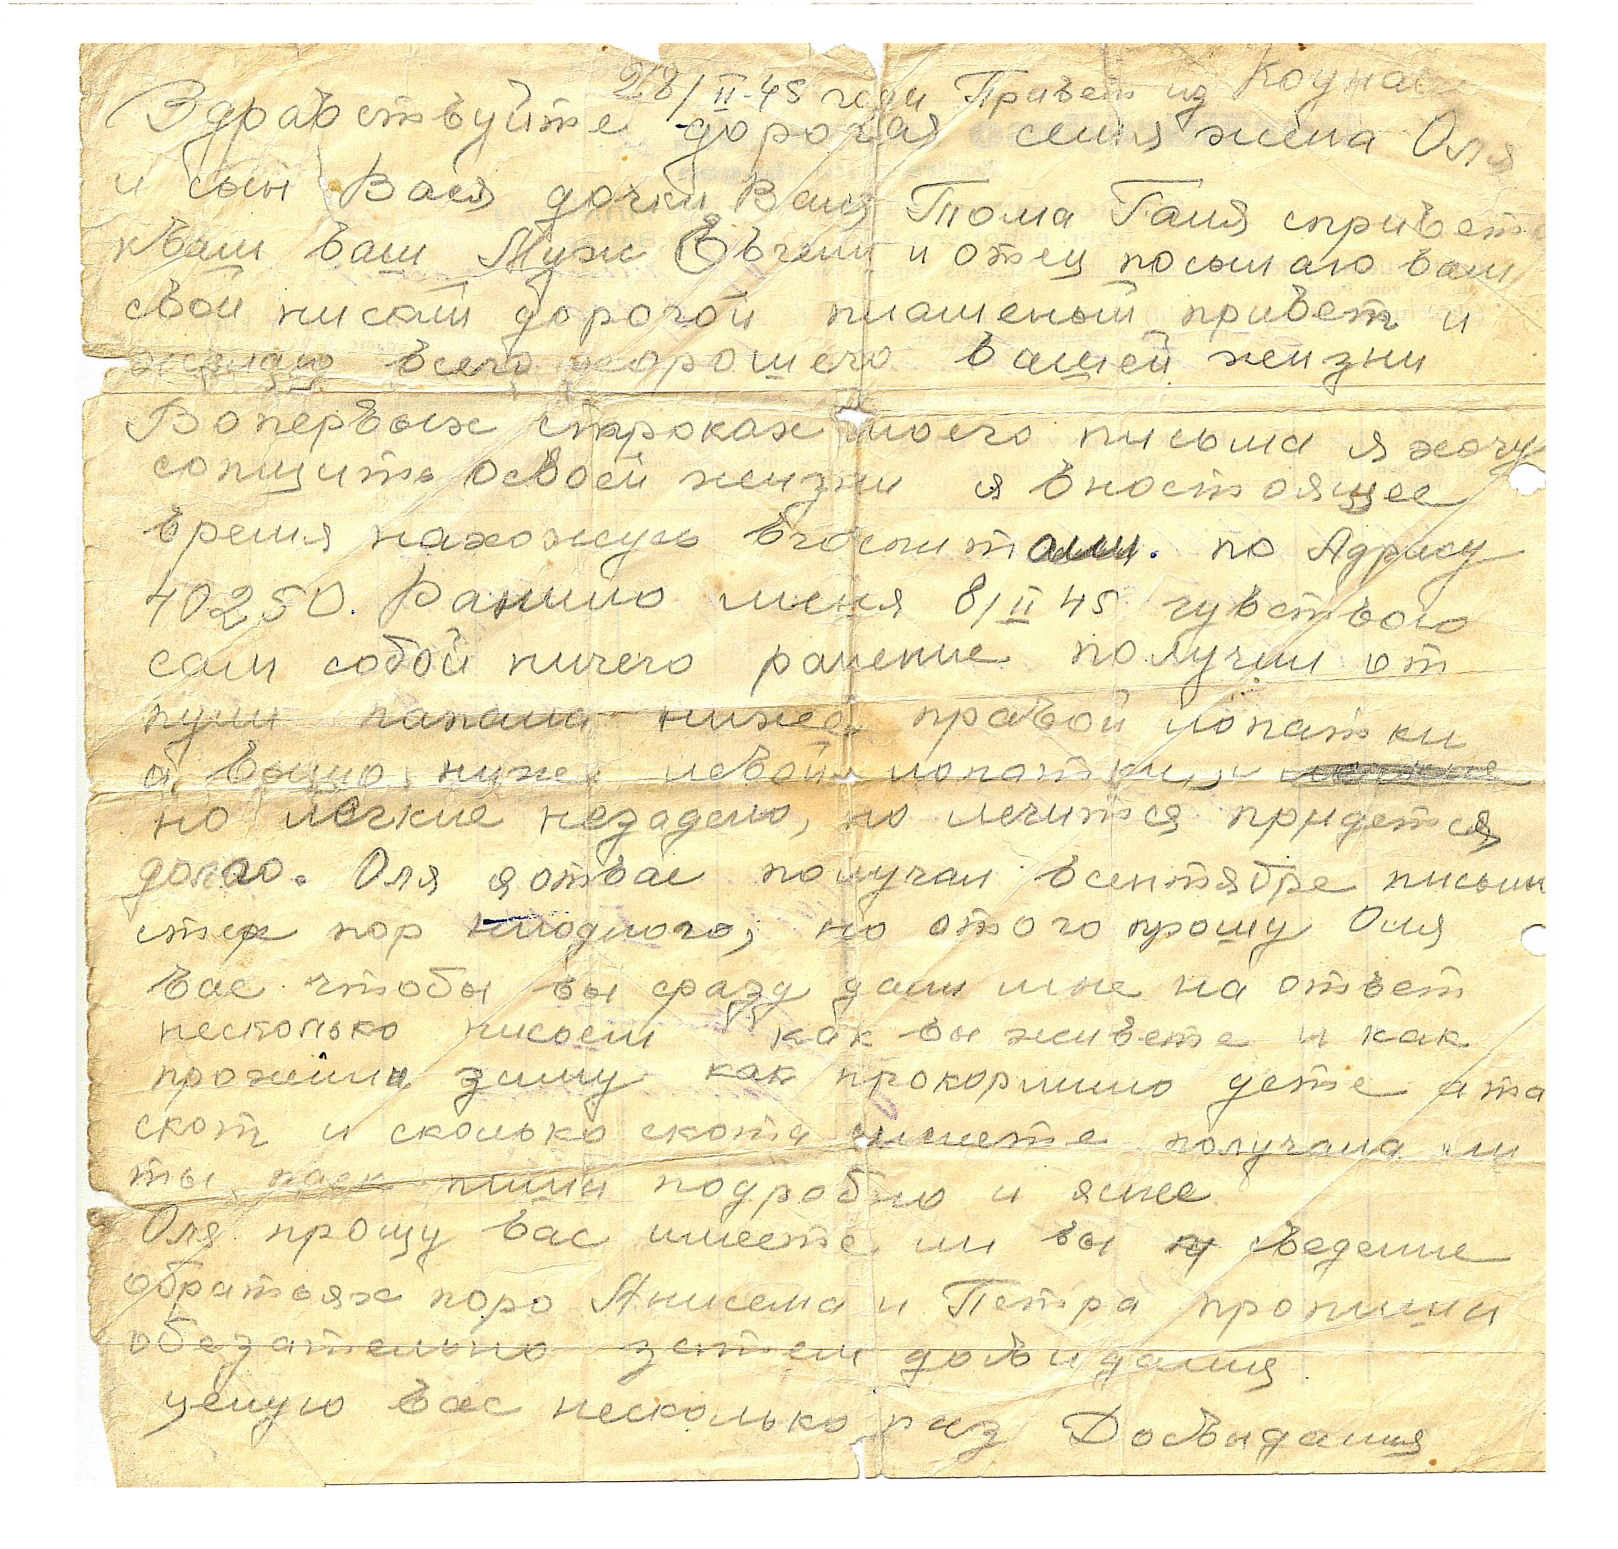 28/II-45 года Привет из Коунас
Здравствуйте дорогая семия жена Оля
и сын Вася дочки Валя Тома Галя сприветом
квам ваш Муж Евгени и отец посылаю вам
свой писам дорогой пламеный привет и
желаю всего хорошего вашей жизни
Вопервых строках моего письма я хочу
сопщить освоей жизни я вностоящее
время нахожусь вгоспитали. по Адрису
40250. Ранило меня 8/II 45 чувствою
сам собой ничего ранение получил от
пули папала ниже правой лопатки
а вышло ниже левой лопатки,
но легкие незадело, но лечится придется
долго. Оля я отвас получал всентябре письмо
стех пор ниодного, но отого прошу Оля
вас чтобы вы сразу дали мне на ответ
несколько писем как вы живете и как
прожили зиму как прокормило дете ита
скот и сколько скота имеете получала ли
ты паек пиши подробно и яснее
Оля прошу вас имеете ли вы сведение
обратьях поро Анисема и Петра пропиши
обезательно затем досвидания
целую вас несколько раз Досвыдания